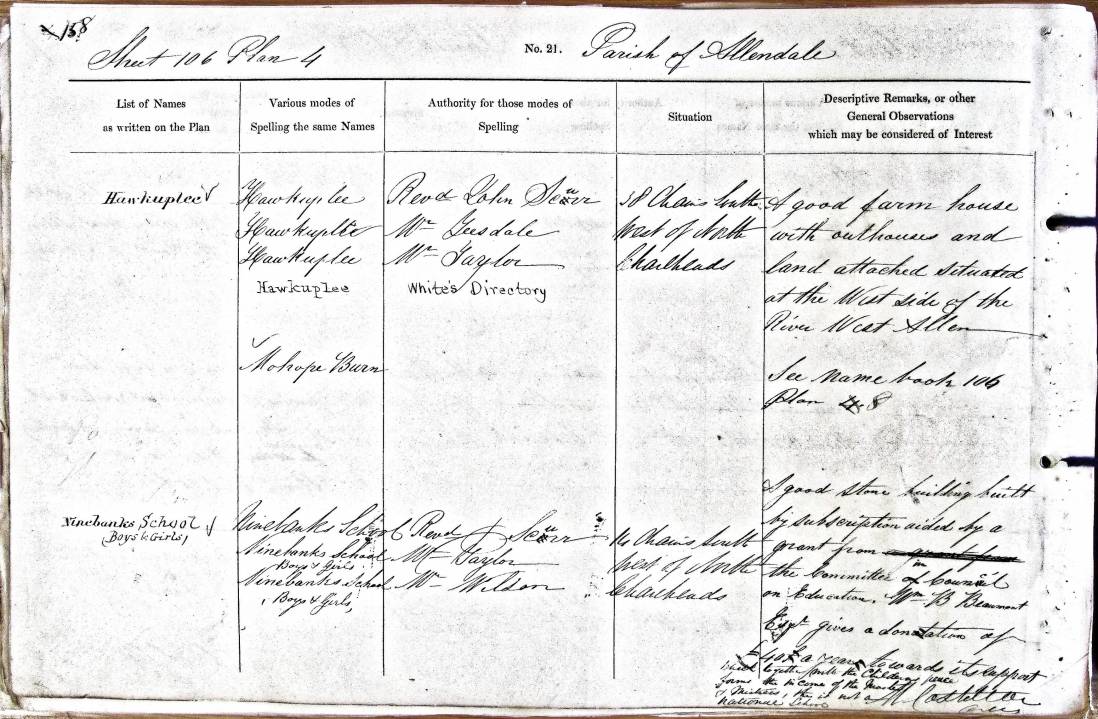 158
Sheet 106 Plan 4
No. 21.
Parish of Allendale
List of Names
as written on the Plan
Various modes of
Spelling the same Names
Authority for those modes of
Spelling
Situation
Descriptive Remarks, or other
General Observations
which may be considered of Interest
Hawkuplee
Hawkuplee
Hawkuplee
Hawkuplee
Hawkuplee
Revd John Scurr
Mr Teesdale
Mr Taylor
White's Directory
38 Chains South
West of North
Chailheads
A good farm house
with outhouses and
land attached situated
at the West side of the
River West Allen
Mohope Burn
See Name book 106
Plan 8
Ninebanks School
(Boys & Girls)
Ninebanks School
Ninebanks School
Boys & Girls
Ninebanks School
Boys & Girls
Revd J Scurr
Mr Taylor
Mr Wilson
14 Chains South
West of North
Chailheads
A good stone building built
by subscription aided by a
grant from
the Committee of Council
on Education. Wm B Beaumont
Esqr gives a donation of
£40 a year towards its support
which together with the Childrens pence
forms the income of the Master
& Mistress, this is not a
National School